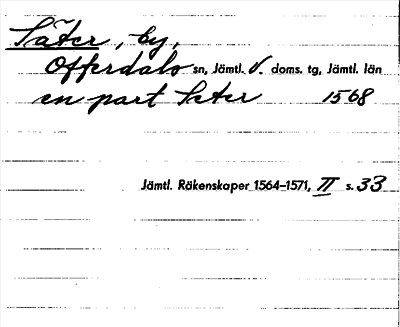 Säter, by,
Offerdals sn, Jämtl. V. doms. tg, Jämtl. län
en part Seter 1568
Jämtl. Räkenskaper 1564-1571, II s. 33